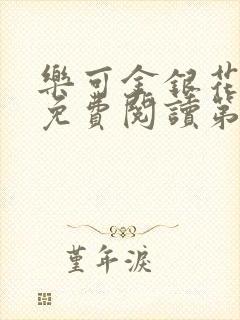 樂可金銀花
免費閱讀第
堇年淚